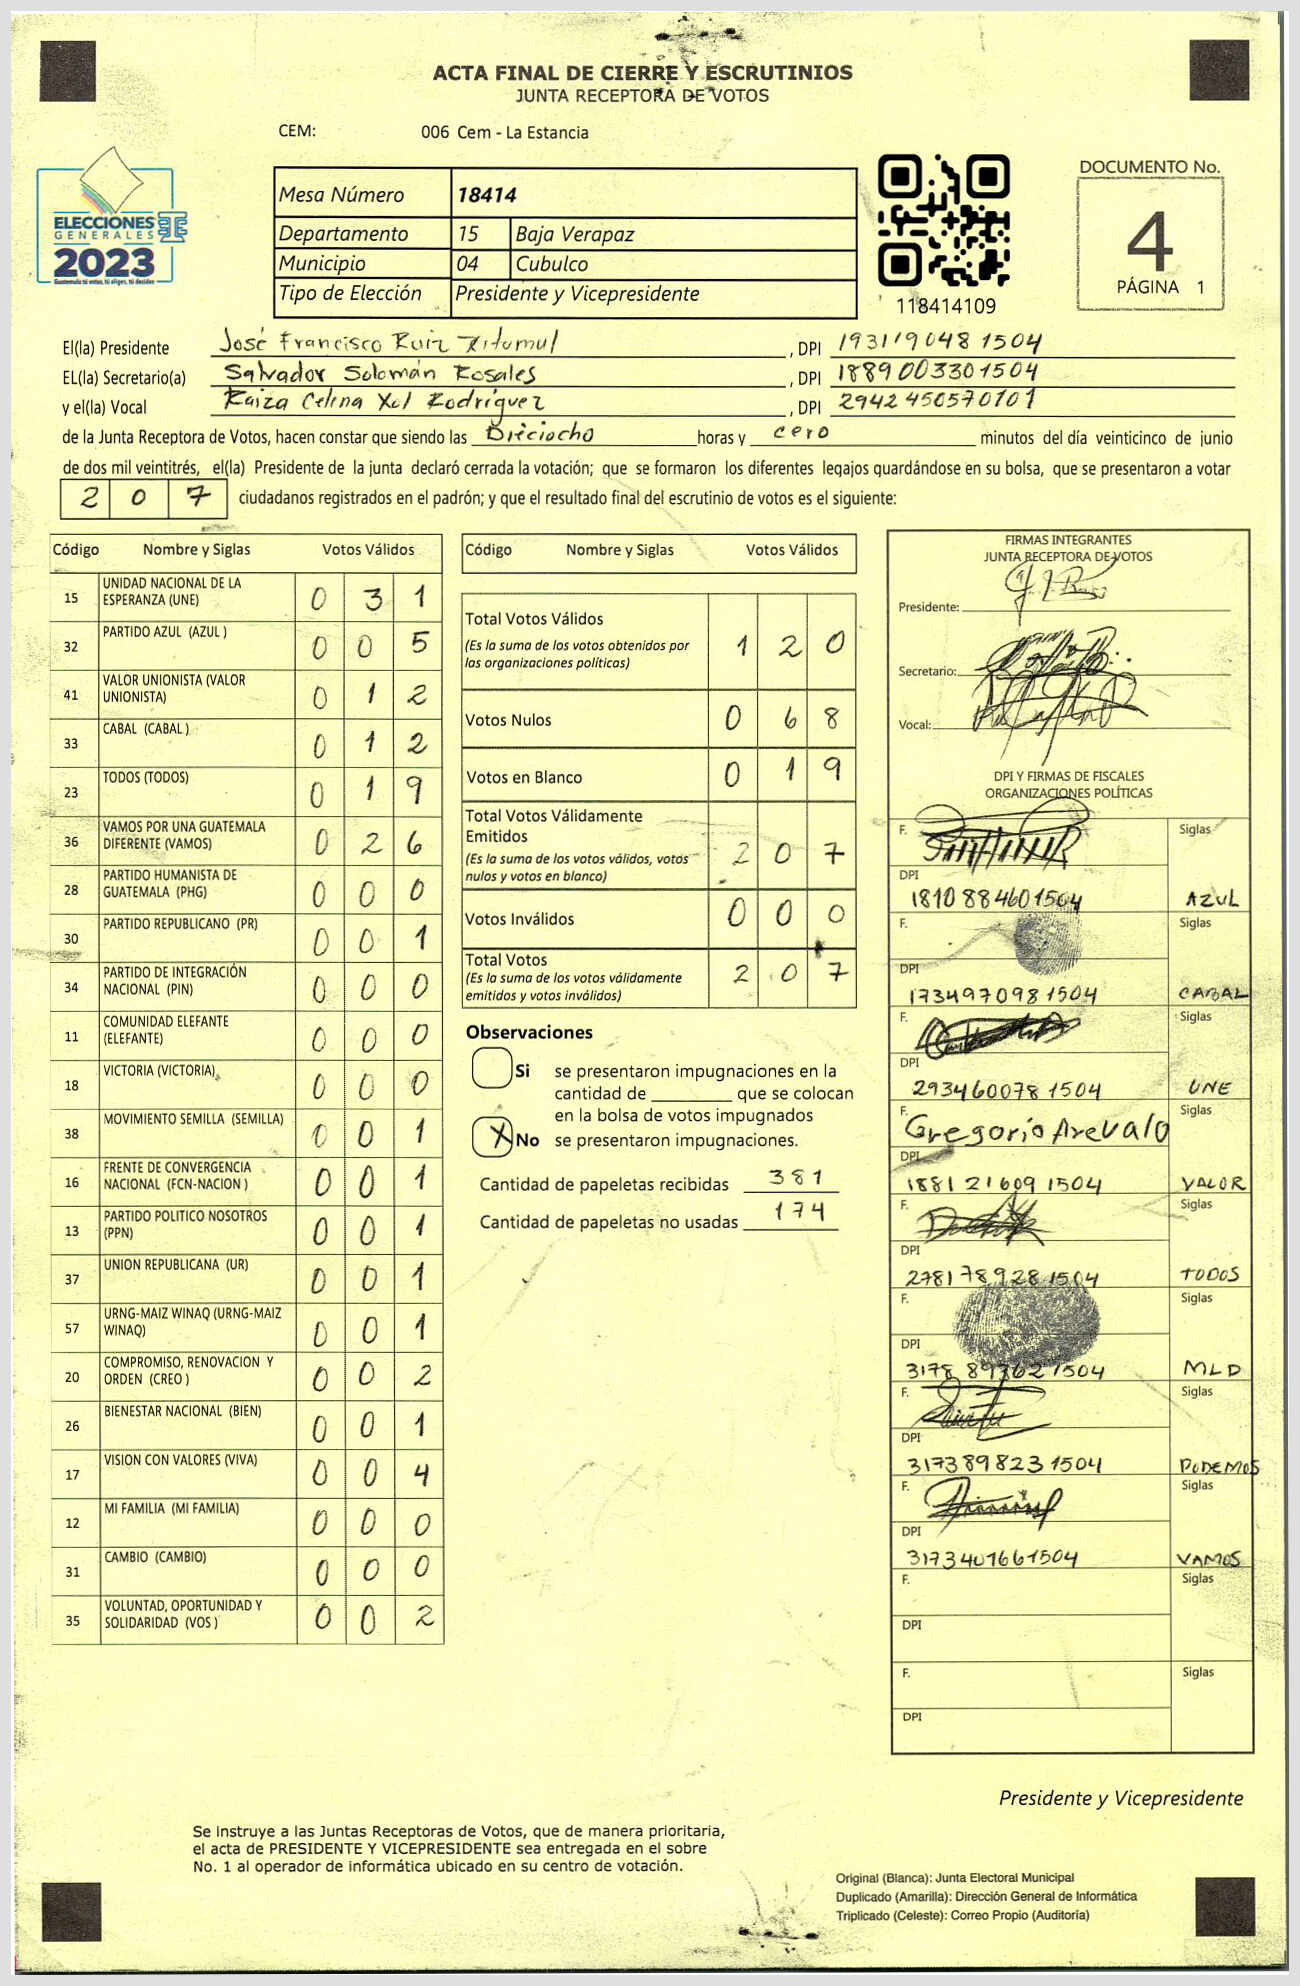 ACTA FINAL DE CIERRE Y ESCRUTINIOS
JUNTA RECEPTORA DE VOTOS
CEM: 006 Cem - La Estancia
ELECCIONES
GENERALES
2023
Guatemala tú votas, tú eliges, tú decides
Mesa Número 18414
Departamento 15 Baja Verapaz
Municipio 04 Cubulco
Tipo de Elección Presidente y Vicepresidente
118414109
DOCUMENTO No.
4
PÁGINA 1
El(la) Presidente José Francisco Ruiz Xitumul , DPI 1931190481504
EL(la) Secretario(a) Salvador Solomán Rosales , DPI 1889003301504
y el(la) Vocal Raiza Celina Xol Rodríguez , DPI 2942450570101
de la Junta Receptora de Votos, hacen constar que siendo las Dieciocho horas y cero minutos del día veinticinco de junio
de dos mil veintitrés, el(la) Presidente de la junta declaró cerrada la votación; que se formaron los diferentes legajos quardándose en su bolsa, que se presentaron a votar
2 0 7 ciudadanos registrados en el padrón; y que el resultado final del escrutinio de votos es el siguiente:
Código Nombre y Siglas Votos Válidos
15 UNIDAD NACIONAL DE LA ESPERANZA (UNE) 0 3 1
32 PARTIDO AZUL (AZUL ) 0 0 5
41 VALOR UNIONISTA (VALOR UNIONISTA) 0 1 2
33 CABAL (CABAL ) 0 1 2
23 TODOS (TODOS) 0 1 9
36 VAMOS POR UNA GUATEMALA DIFERENTE (VAMOS) 0 2 6
28 PARTIDO HUMANISTA DE GUATEMALA (PHG) 0 0 0
30 PARTIDO REPUBLICANO (PR) 0 0 1
34 PARTIDO DE INTEGRACIÓN NACIONAL (PIN) 0 0 0
11 COMUNIDAD ELEFANTE (ELEFANTE) 0 0 0
18 VICTORIA (VICTORIA) 0 0 0
38 MOVIMIENTO SEMILLA (SEMILLA) 0 0 1
16 FRENTE DE CONVERGENCIA NACIONAL (FCN-NACION ) 0 0 1
13 PARTIDO POLITICO NOSOTROS (PPN) 0 0 1
37 UNION REPUBLICANA (UR) 0 0 1
57 URNG-MAIZ WINAQ (URNG-MAIZ WINAQ) 0 0 1
20 COMPROMISO, RENOVACION Y ORDEN (CREO ) 0 0 2
26 BIENESTAR NACIONAL (BIEN) 0 0 1
17 VISION CON VALORES (VIVA) 0 0 4
12 MI FAMILIA (MI FAMILIA) 0 0 0
31 CAMBIO (CAMBIO) 0 0 0
35 VOLUNTAD, OPORTUNIDAD Y SOLIDARIDAD (VOS ) 0 0 2
Código Nombre y Siglas Votos Válidos
Total Votos Válidos 1 2 0
(Es la suma de los votos obtenidos por
las organizaciones políticas)
Votos Nulos 0 6 8
Votos en Blanco 0 1 9
Total Votos Válidamente
Emitidos 2 0 7
(Es la suma de los votos válidos, votos
nulos y votos en blanco)
Votos Inválidos 0 0 0
Total Votos 2 0 7
(Es la suma de los votos válidamente
emitidos y votos inválidos)
Observaciones
Si se presentaron impugnaciones en la
cantidad de ________ que se colocan
en la bolsa de votos impugnados
X No se presentaron impugnaciones.
Cantidad de papeletas recibidas 381
Cantidad de papeletas no usadas 174
FIRMAS INTEGRANTES
JUNTA RECEPTORA DE VOTOS
Presidente:
Secretario:
Vocal:
DPI Y FIRMAS DE FISCALES
ORGANIZACIONES POLÍTICAS
F. Siglas
DPI
1810884601504 AZUL
F. Siglas
DPI
1734970981504 CABAL
F. Siglas
DPI
2934600781504 UNE
F. Siglas
Gregorio Arevalo
DPI
1881216091504 VALOR
F. Siglas
DPI
2781789281504 TODOS
F. Siglas
DPI
3178893621504 MLD
F. Siglas
DPI
3173898231504 PODEMOS
F. Siglas
DPI
3173401661504 VAMOS
F. Siglas
DPI
F. Siglas
DPI
Presidente y Vicepresidente
Se instruye a las Juntas Receptoras de Votos, que de manera prioritaria,
el acta de PRESIDENTE Y VICEPRESIDENTE sea entregada en el sobre
No. 1 al operador de informática ubicado en su centro de votación.
Original (Blanca): Junta Electoral Municipal
Duplicado (Amarilla): Dirección General de Informática
Triplicado (Celeste): Correo Propio (Auditoría)